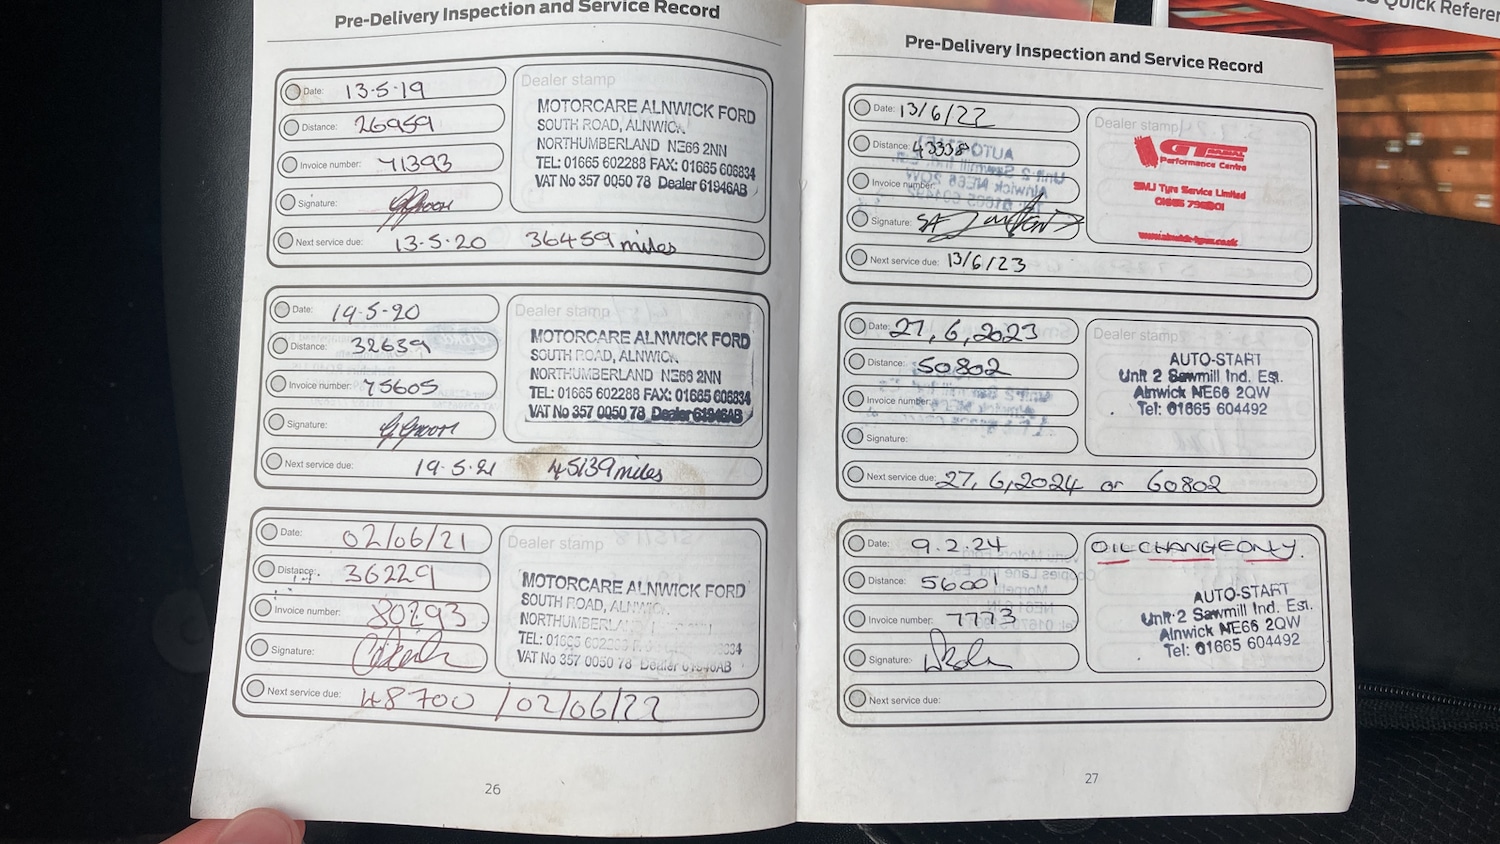 Pre-Delivery Inspection and Service Record
Date: 13-5-19
Distance: 26959
Invoice number: 71393
Signature:
Next service due: 13-5-20 36459 miles
Dealer stamp
MOTORCARE ALNWICK FORD
SOUTH ROAD, ALNWICK,
NORTHUMBERLAND NE66 2NN
TEL: 01665 602288 FAX: 01665 606834
VAT No 357 0050 78 Dealer 61946AB
Date: 19-5-20
Distance: 32639
Invoice number: 75605
Signature:
Next service due: 19-5-21 45139 miles
Dealer stamp
MOTORCARE ALNWICK FORD
SOUTH ROAD, ALNWICK,
NORTHUMBERLAND NE66 2NN
TEL: 01665 602288 FAX: 01665 606834
VAT No 357 0050 78 Dealer 61946AB
Date: 02/06/21
Distance: 36229
Invoice number: 80293
Signature:
Next service due: 48700 / 02/06/22
Dealer stamp
MOTORCARE ALNWICK FORD
SOUTH ROAD, ALNWICK,
NORTHUMBERLAND
TEL: 01665 602288
VAT No 357 0050 78 Dealer 61946AB
26
Pre-Delivery Inspection and Service Record
Date: 13/6/22
Distance: 43338
Invoice number:
Signature:
Next service due: 13/6/23
Dealer stamp
GT
Performance Centre
SMJ Tyre Service Limited
Date: 27,6,2023
Distance: 50802
Invoice number:
Signature:
Next service due: 27,6,2024 or 60802
Dealer stamp
AUTO-START
Unit 2 Sawmill Ind. Est.
Alnwick NE66 2QW
Tel: 01665 604492
Date: 9.2.24
Distance: 56001
Invoice number: 7773
Signature:
Next service due:
OIL CHANGE ONLY.
AUTO-START
Unit 2 Sawmill Ind. Est.
Alnwick NE66 2QW
Tel: 01665 604492
27
Quick Refere